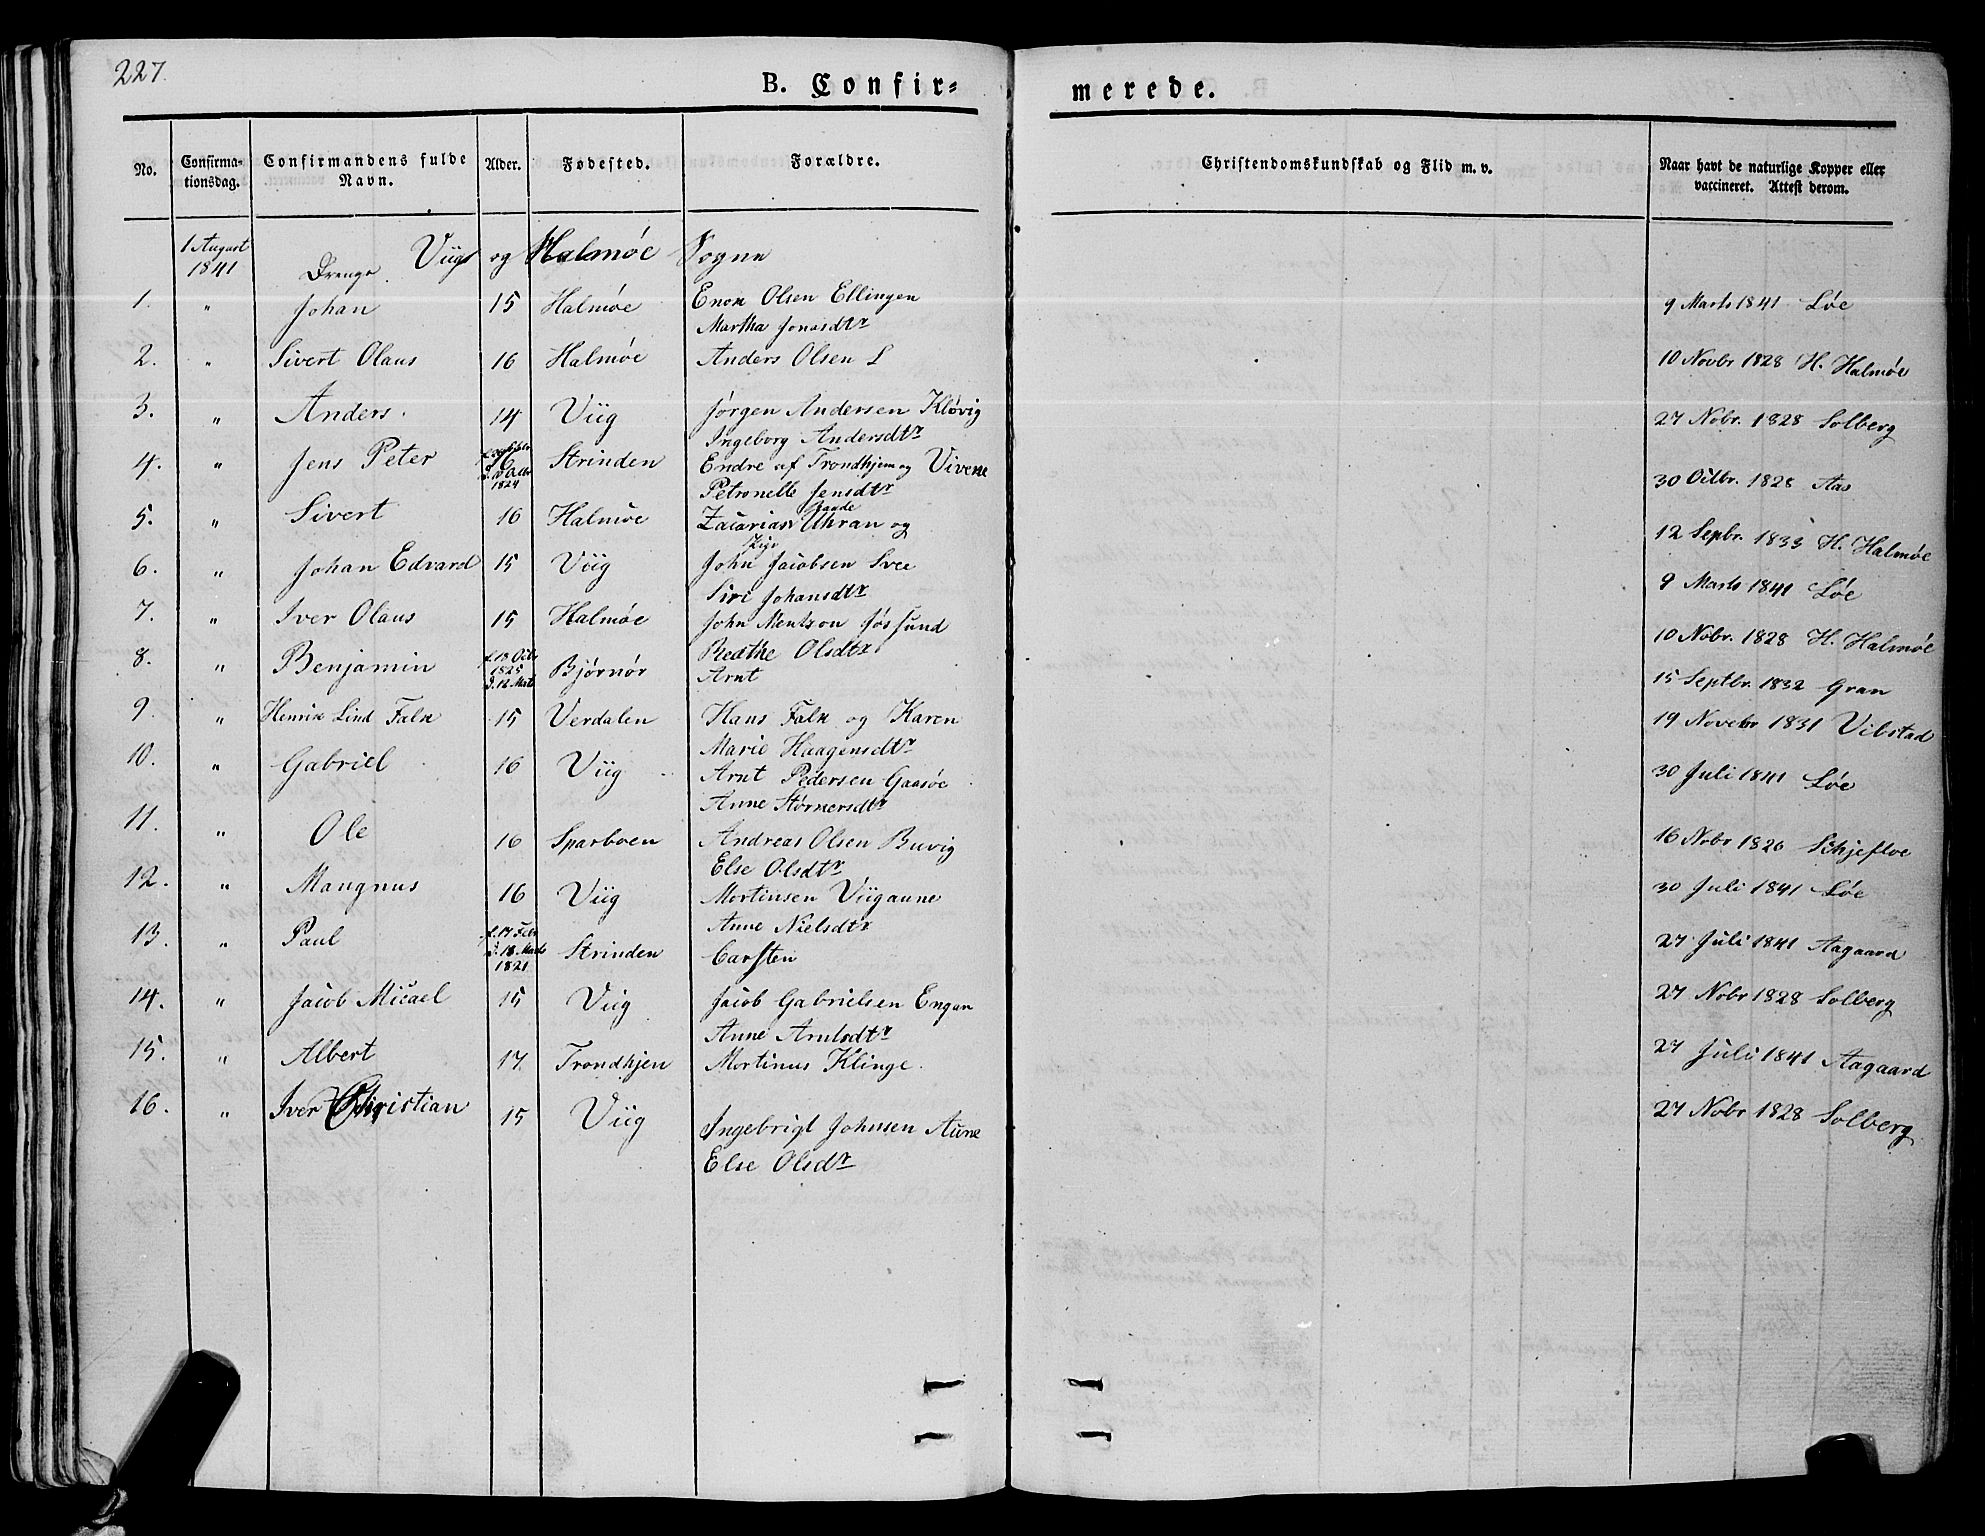 227.
B. Confir=
merede.
No. Confirma-tionsdag. Confirmandens fulde Navn. Alder. Fødested. Forældre. Christendomskundskab og Flid m. v. Naar havt de naturlige Kopper eller vaccineret. Attest derom.
1 August 1841 Drenge Viig og Halmøe Sogne
1. " Johan 15 Halmøe Enok Olsen Ellingen 9 Marts 1841 Løe
Martha Jonasdtr
2. " Sivert Olaus 16 Halmøe Anders Olsen L 10 Novbr 1828 H. Halmøe
3. " Anders. 14 Viig Jørgen Andersen Kløvig 27 Nobr. 1828 Solberg
Ingeborg Andersdtr
4. " Jens Peter 1824 Strinden Endre af Trondhjem og Vivene 30 Octbr. 1828 Aas
Petronelle Jensdtr
5. " Sivert 16 Halmøe Zacarias Uhran og 12 Sepbr. 1833 H. Halmøe
6. " Johan Edvard 15 Viig John Jacobsen Svee 9 Marts 1841 Løe
Siri Johansdtr
7. " Iver Olaus 15 Halmøe John Mentzon Jøssund 10 Nobr. 1828 H. Halmøe
Reathe Olsdtr
8. " Benjamin f. 18 Octb 1825 d. 12 Mart Bjørnør Arnt 15 Septbr. 1832 Gran
9. " Henrik Lind Falk 15 Verdalen Hans Falk og Karen 19 Novebr 1831 Vibstad
Marie Haagensdtr
10. " Gabriel 16 Viig Arnt Pedersen Gaasøe 30 Juli 1841 Løe
Anne Størkersdtr
11. " Ole 16 Sparboen Andreas Olsen Buvig 16 Nobr 1826 Schjefloe
Else Olsdtr
12. " Mangnus 16 Viig Mortinsen Viigaune 30 Juli 1841 Løe
Anne Nielsdtr
13. " Paul f. 17 Febr d. 18. Marts 1821 Strinden Carsten 27 Juli 1841 Aagaard
14. " Jacob Micael 15 Viig Jacob Gabrielsen Engan 27 Nobr 1828 Solberg
Anne Arntsdtr
15. " Albert 17 Trondhjen Mortinus Klinge. 27 Juli 1841 Aagaard
16. " Iver Christian 15 Viig Ingebrigt Johnsen Aune 27 Nobr 1828 Solberg
Else Olsdtr